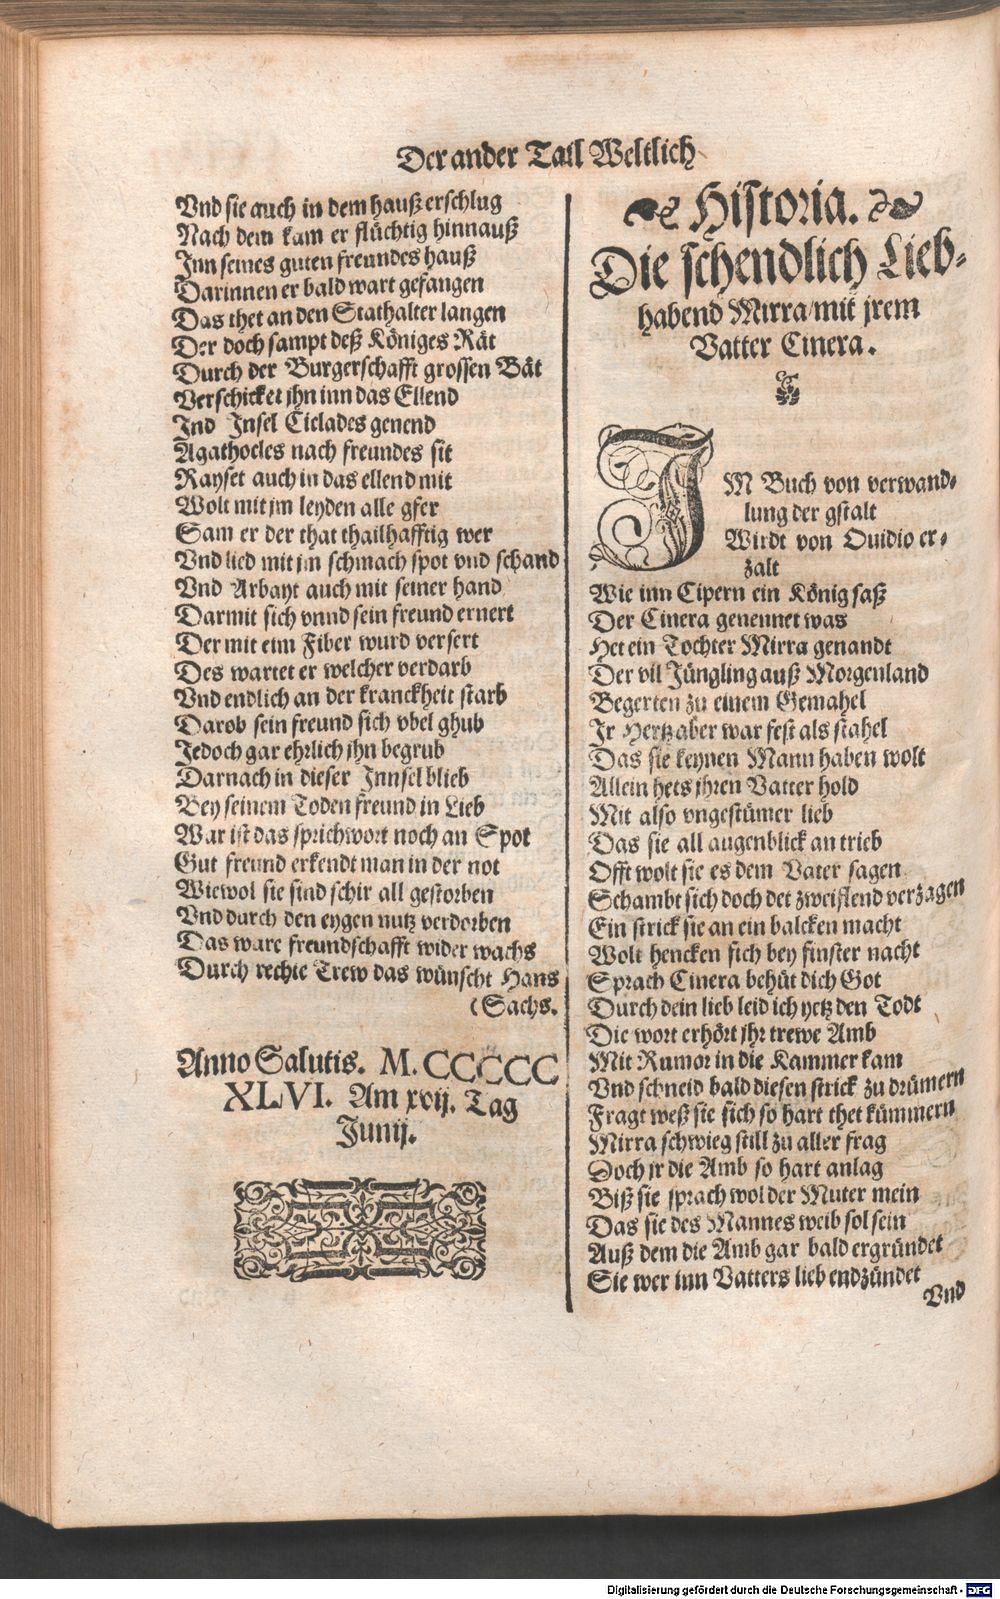 Der ander Tail Weltlich
Vnd sie auch in dem hauß erschlug
Nach dem kam er flüchtig hinnauß
Jnn seines guten freundes hauß
Darinnen er bald wart gefangen
Das thet an den Stathalter langen
Der doch sampt deß Königes Rät
Durch der Burgerschafft grossen Bät
Verschicket jhn inn das Ellend
Jnd Jnsel Ciclades genend
Agathocles nach freundes sit
Rayset auch in das ellend mit
Wolt mit jm leyden alle gfer
Sam er der that thailhafftig wer
Vnd lied mit jm schmach spot vnd schand
Vnd Arbayt auch mit seiner hand
Darmit sich vnnd sein freund ernert
Der mit eim Fiber wurd versert
Des wartet er welcher verdarb
Vnd endlich an der kranckheit starb
Darob sein freund sich vbel ghub
Jedoch gar ehrlich jhn begrub
Darnach in dieser Jnnsel blieb
Bey seinem Toden freund in Lieb
War ist das sprichwort noch an Spot
Gut freund erkendt man in der not
Wiewol sie sind schir all gestorben
Vnd durch den eygen nutz verdorben
Das ware freundschafft wider wachs
Durch rechte Trew das wünscht Hans
(Sachs.
Anno Salutis. M. CCCCC
XLVI. Am xvij. Tag
Junij.
Historia.
Die schendlich Lieb-
habend Mirra/mit jrem
Vatter Cinera.
JM Buch von verwand-
lung der gstalt
Wirdt von Ouidio er-
zalt
Wie inn Cipern ein König saß
Der Cinera genennet was
Het ein Tochter Mirra genandt
Der vil Jüngling auß Morgenland
Begerten zu einem Gemahel
Jr Hertz aber war fest als stahel
Das sie keynen Mann haben wolt
Allein hets jhren Vatter hold
Mit also vngestümer lieb
Das sie all augenblick an trieb
Offt wolt sie es dem Vater sagen
Schambt sich doch det zweiflend verzagen
Ein strick sie an ein balcken macht
Wolt hencken sich bey finster nacht
Sprach Cinera behüt dich Got
Durch dein lieb leid ich yetz den Todt
Die wort erhört jhr trewe Amb
Mit Rumor in die Kammer kam
Vnd schneid bald diesen strick zu drümern
Fragt weß sie sich so hart thet kümmern
Mirra schwieg still zu aller frag
Doch jr die Amb so hart anlag
Biß sie sprach wol der Muter mein
Das sie des Mannes weib sol sein
Auß dem die Amb gar bald ergründet
Sie wer inn Vatters lieb endzündet
Vnd
Digitalisierung gefördert durch die Deutsche Forschungsgemeinschaft - DFG